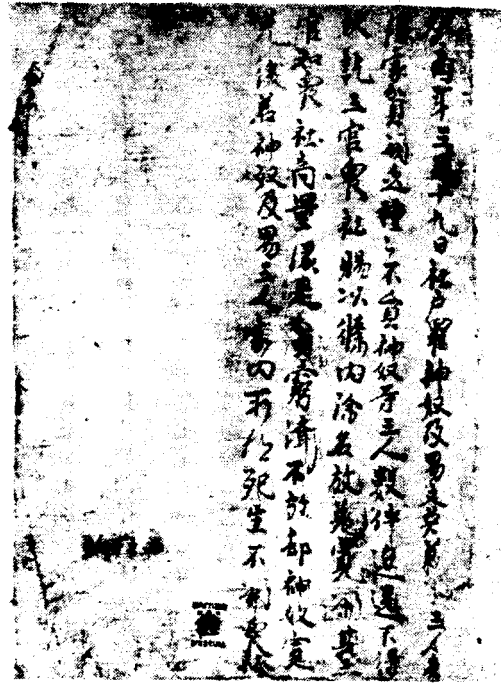 酉年三月十九日社戶羅神奴及男文英義 三人
緣家貧闕乏種々不員神奴等三人數件追逐不得
伏乞三官衆社賜以條內除名放免寬閑其三
官知衆社商量緣是貧窮濟不於却神奴寬
免後若神奴及男三人家內所有死生不關衆社